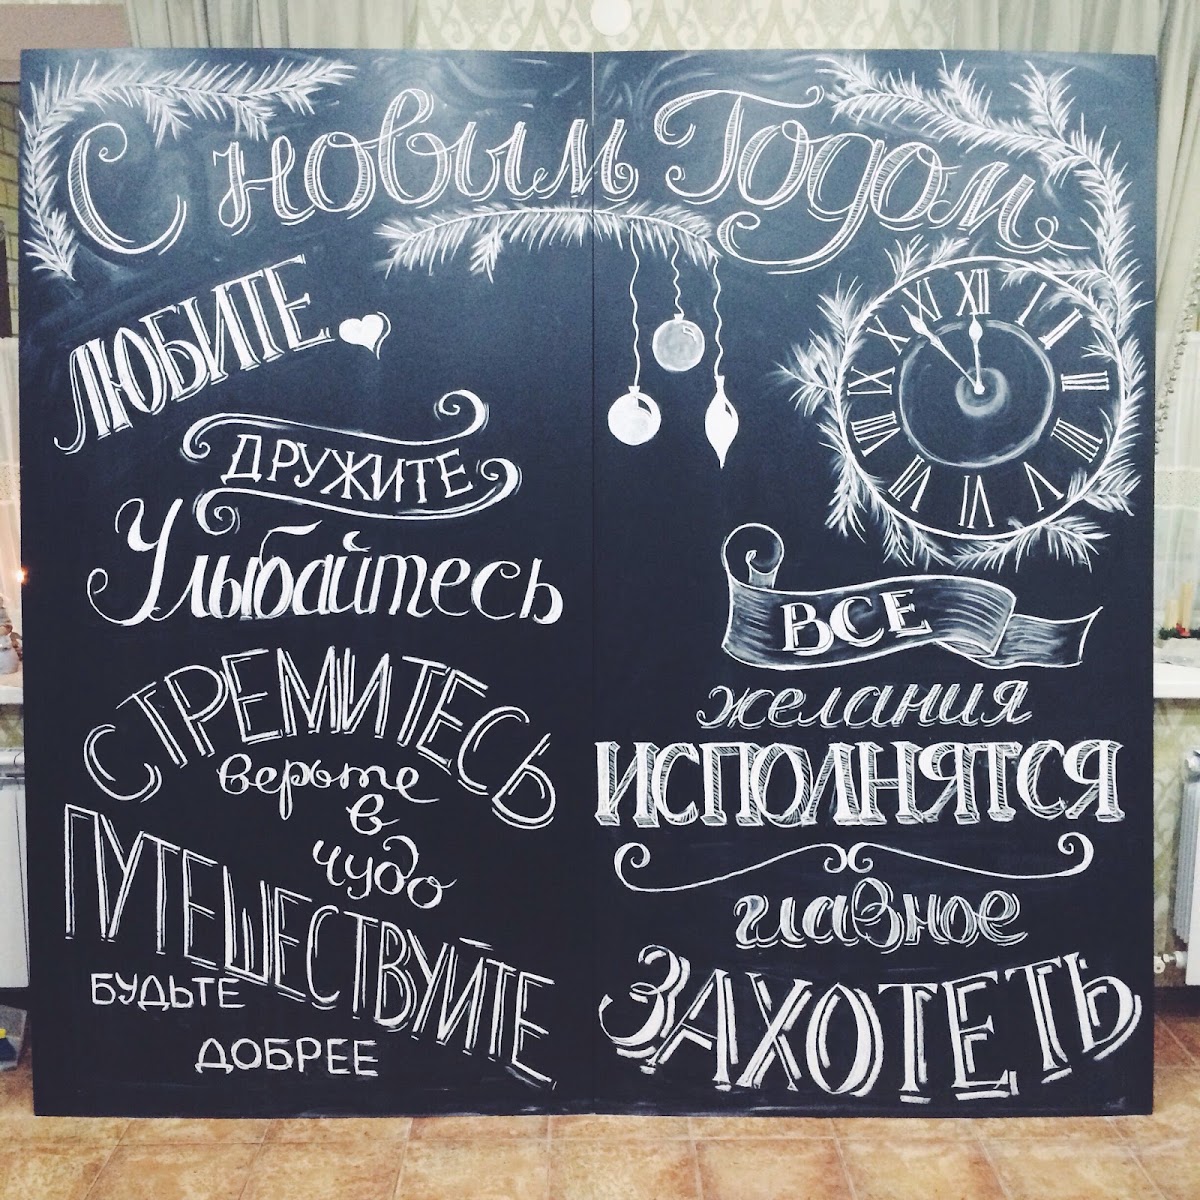 С новым Годом
ЛЮБИТЕ
ДРУЖИТЕ
Улыбайтесь
СТРЕМИТЕСЬ
верьте
в
чудо
ПУТЕШЕСТВУЙТЕ
БУДЬТЕ
ДОБРЕЕ
XII
I
II
III
IIII
V
VI
VII
VIII
XI
X
XI
ВСЕ
желания
ИСПОЛНЯТСЯ
главное
ЗАХОТЕТЬ